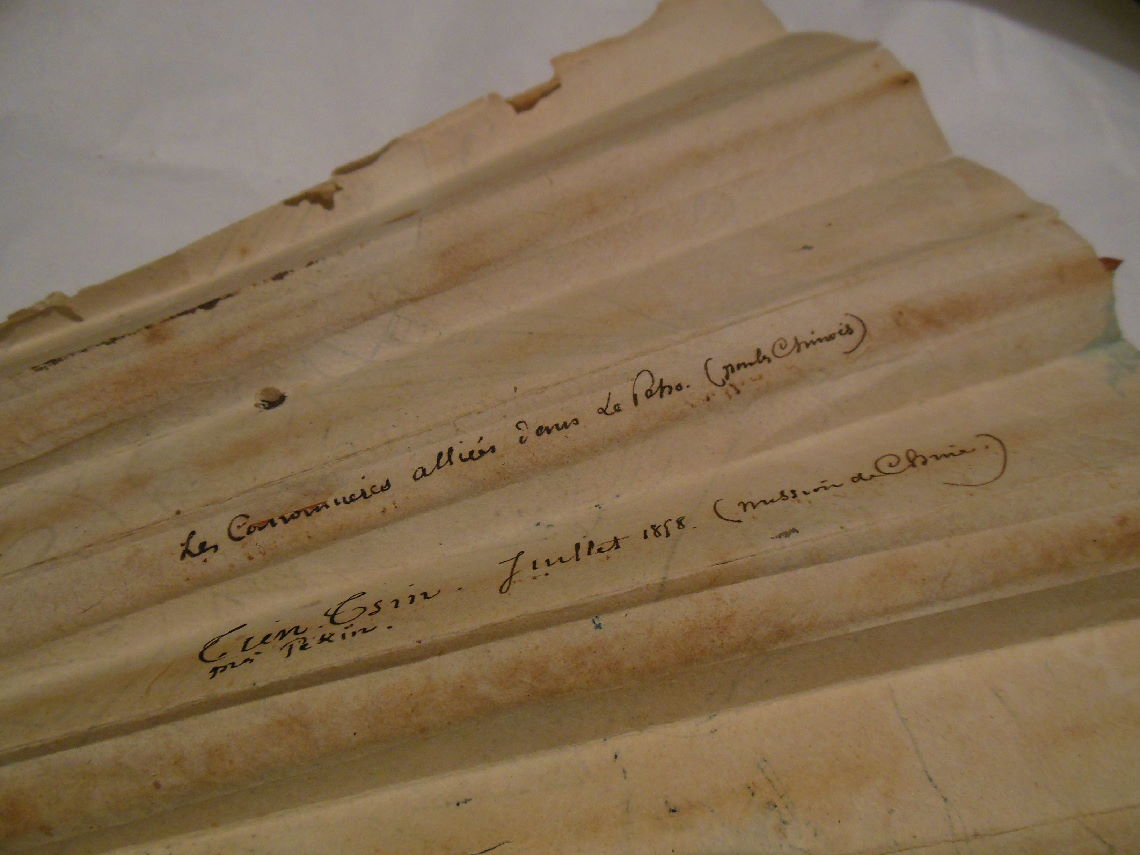 Les Canonnieres alliés dans Le Peho. (par les Chinois)
Tien Tsin. Juillet 1858. (mission de Chine.)
près Pekin.